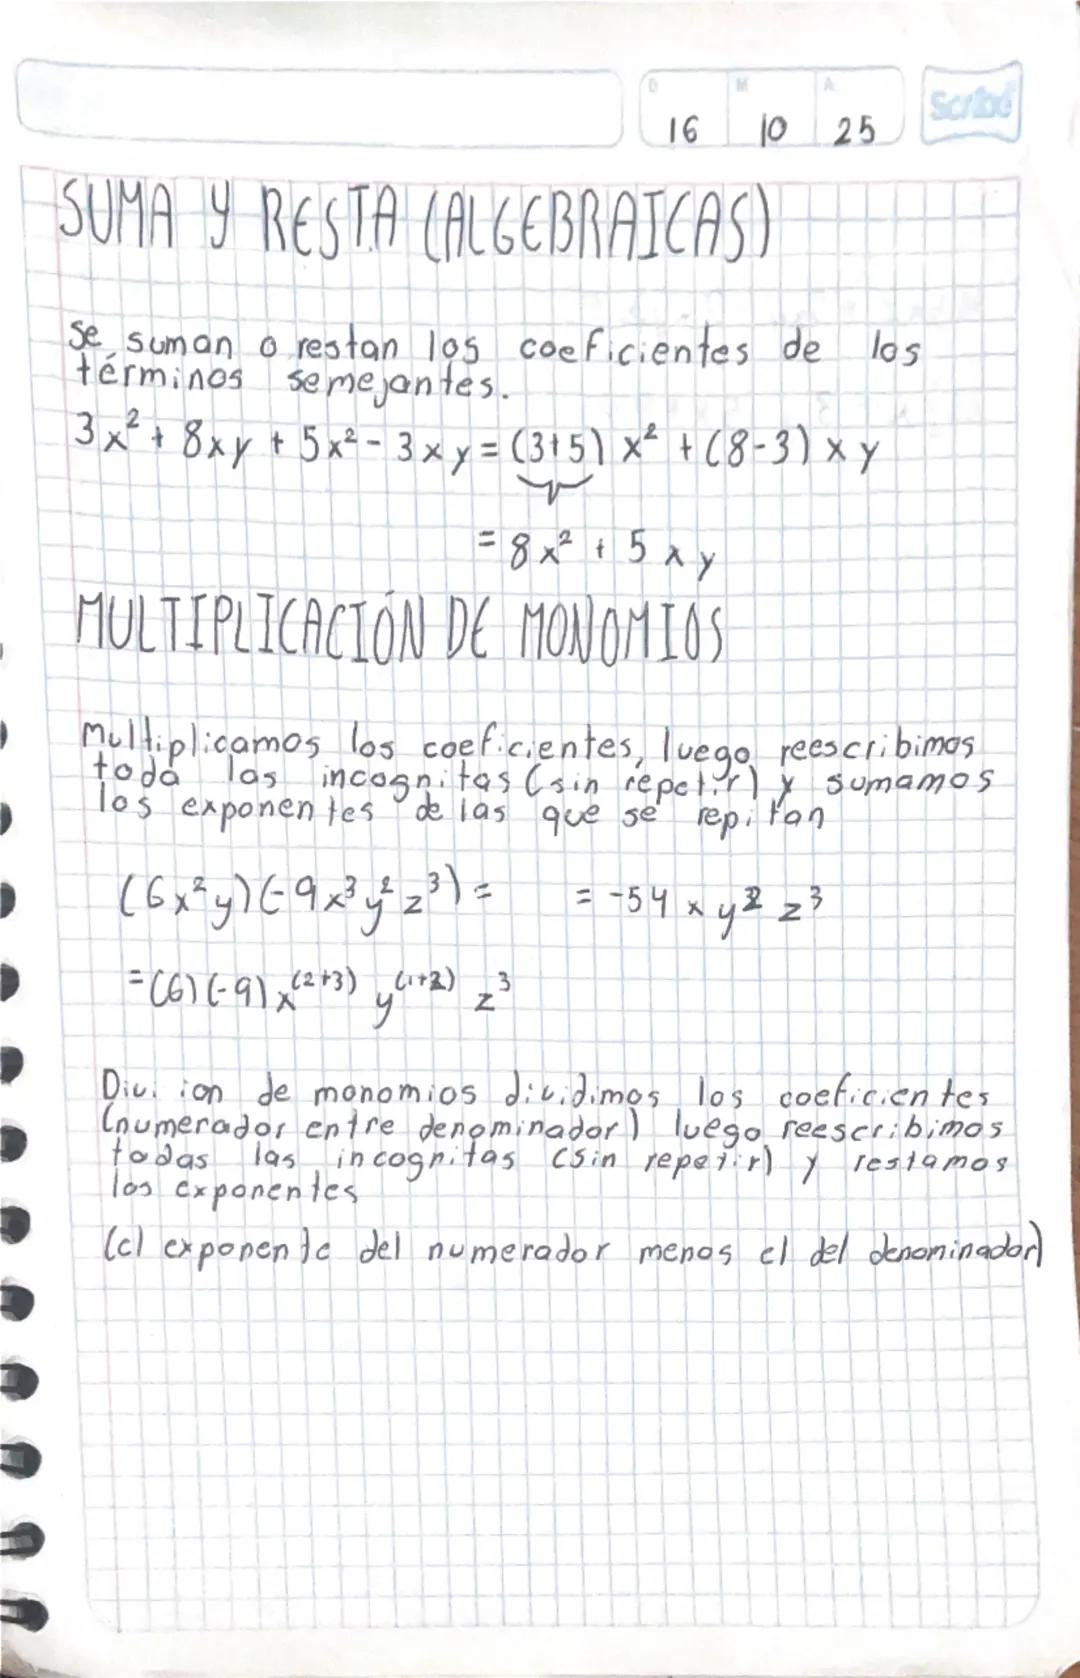 D M A
16 10 25
Scribe
SUMA Y RESTA (ALGEBRAICAS)
Se suman o restan los coeficientes de los
términos semejantes.
3x² + 8xy + 5x² - 3xy = (3+5) x² + (8-3) xy
= 8x² + 5xy
MULTIPLICACIÓN DE MONOMIOS
Multiplicamos los coeficientes, luego reescribimos
toda las incognitas (sin repetir) y sumamos
los exponentes de las que se repitan
(6x²y)(-9x³y²z³) = = -54 x y² z³
=(6)(-9)x⁽²⁺³⁾ y⁽¹⁺²⁾ z³
Divi ion de monomios dividimos los coeficientes
(numerador entre denominador) luego reescribimos
todas las incognitas (sin repetir) y restamos
los exponentes
(el exponente del numerador menos el del denominador)